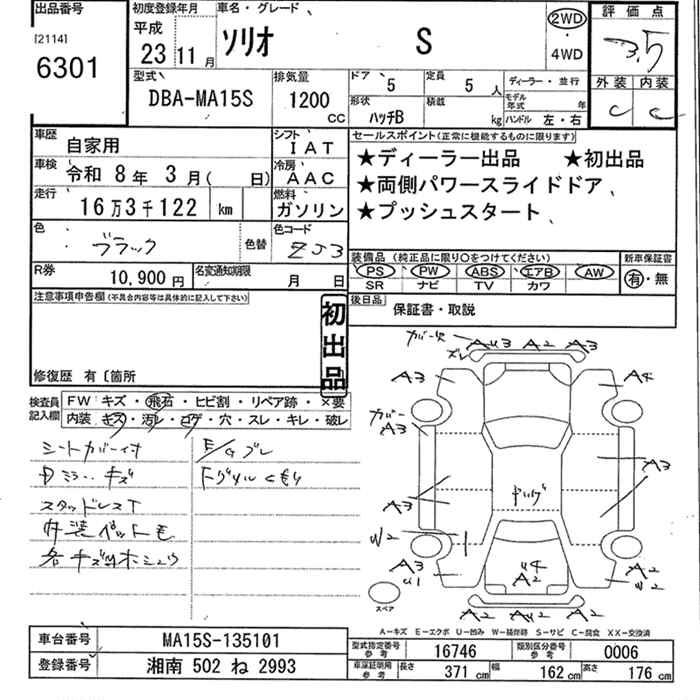 出品番号
[2114]
6301
初度登録年月
平成
23 11 月
車名・グレード
ソリオ S
2WD
・
4WD
評価点
3.5
外装 内装
C C
型式
DBA-MA15S
排気量
1200
CC
ドア 5
定員 5 人
形状 ハッチB
積載 kg
ディーラー・並行
モデル年式 年
ハンドル 左・右
車歴 自家用
シフト IAT
車検 令和 8 年 3 月( 日)
冷房 AAC
走行 16 万 3 千 122 km
燃料 ガソリン
色 ブラック 色替
色コード ZJ3
R券 10,900 円
名変通知期限 月 日
セールスポイント(正常に機能するものに限ります)
★ディーラー出品 ★初出品
★両側パワースライドドア
★プッシュスタート
装備品(純正品に限り〇をつけてください)
新車保証書
PS PW ABS エアB AW
有・無
SR ナビ TV カワ
後日品 保証書・取説
注意事項申告欄(不具合内容等は具体的に記入して下さい)
初出品
修復歴 有〔箇所
検査員記入欄
FW キズ・飛石・ヒビ割・リペア跡・×要
内装 キズ・汚レ・コゲ・穴・スレ・キレ・破レ
シートカバー付
Dミラーキズ
スタッドレスT
内装ペット毛
各キズ
F/Gブレ
Fグリルくもり
カバー欠
ズレ
AU3 A2 A3
A3
A4
カバー
A3
A3
A3
W2
A3
U1
U4
A2
A2
W2
A2 AW2 A2
スペア
A-キズ E-エクボ U-凹み W-補修跡 S-サビ C-腐食 XX-交換済
車台番号 MA15S-135101
登録番号 湘南 502 ね 2993
型式指定番号 参考 16746
類別区分番号 参考 0006
車庫証明用 参考
長さ 371 cm
幅 162 cm
高さ 176 cm